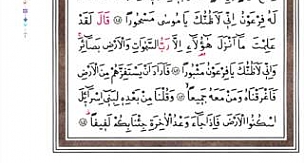 لَهُ فِرْعَوْنُ اِنّ۪ي لَاَظُنُّكَ يَا مُوسٰى مَسْحُورًا ۝ قَالَ لَقَدْ
عَلِمْتَ مَٓا اَنْزَلَ هٰٓؤُ۬لَٓاءِ اِلَّا رَبُّ السَّمٰوَاتِ وَالْاَرْضِ بَصَٓائِرَۚ
وَاِنّ۪ي لَاَظُنُّكَ يَا فِرْعَوْنُ مَثْبُورًا ۝ فَاَرَادَ اَنْ يَسْتَفِزَّهُمْ مِنَ الْاَرْضِ
فَاَغْرَقْنَاهُ وَمَنْ مَعَهُ جَم۪يعًا ۝ وَقُلْنَا مِنْ بَعْدِه۪ لِبَن۪ٓي اِسْرَٓائ۪لَ
اسْكُنُوا الْاَرْضَ فَاِذَا جَٓاءَ وَعْدُ الْاٰخِرَةِ جِئْنَا بِكُمْ لَف۪يفًا ۝